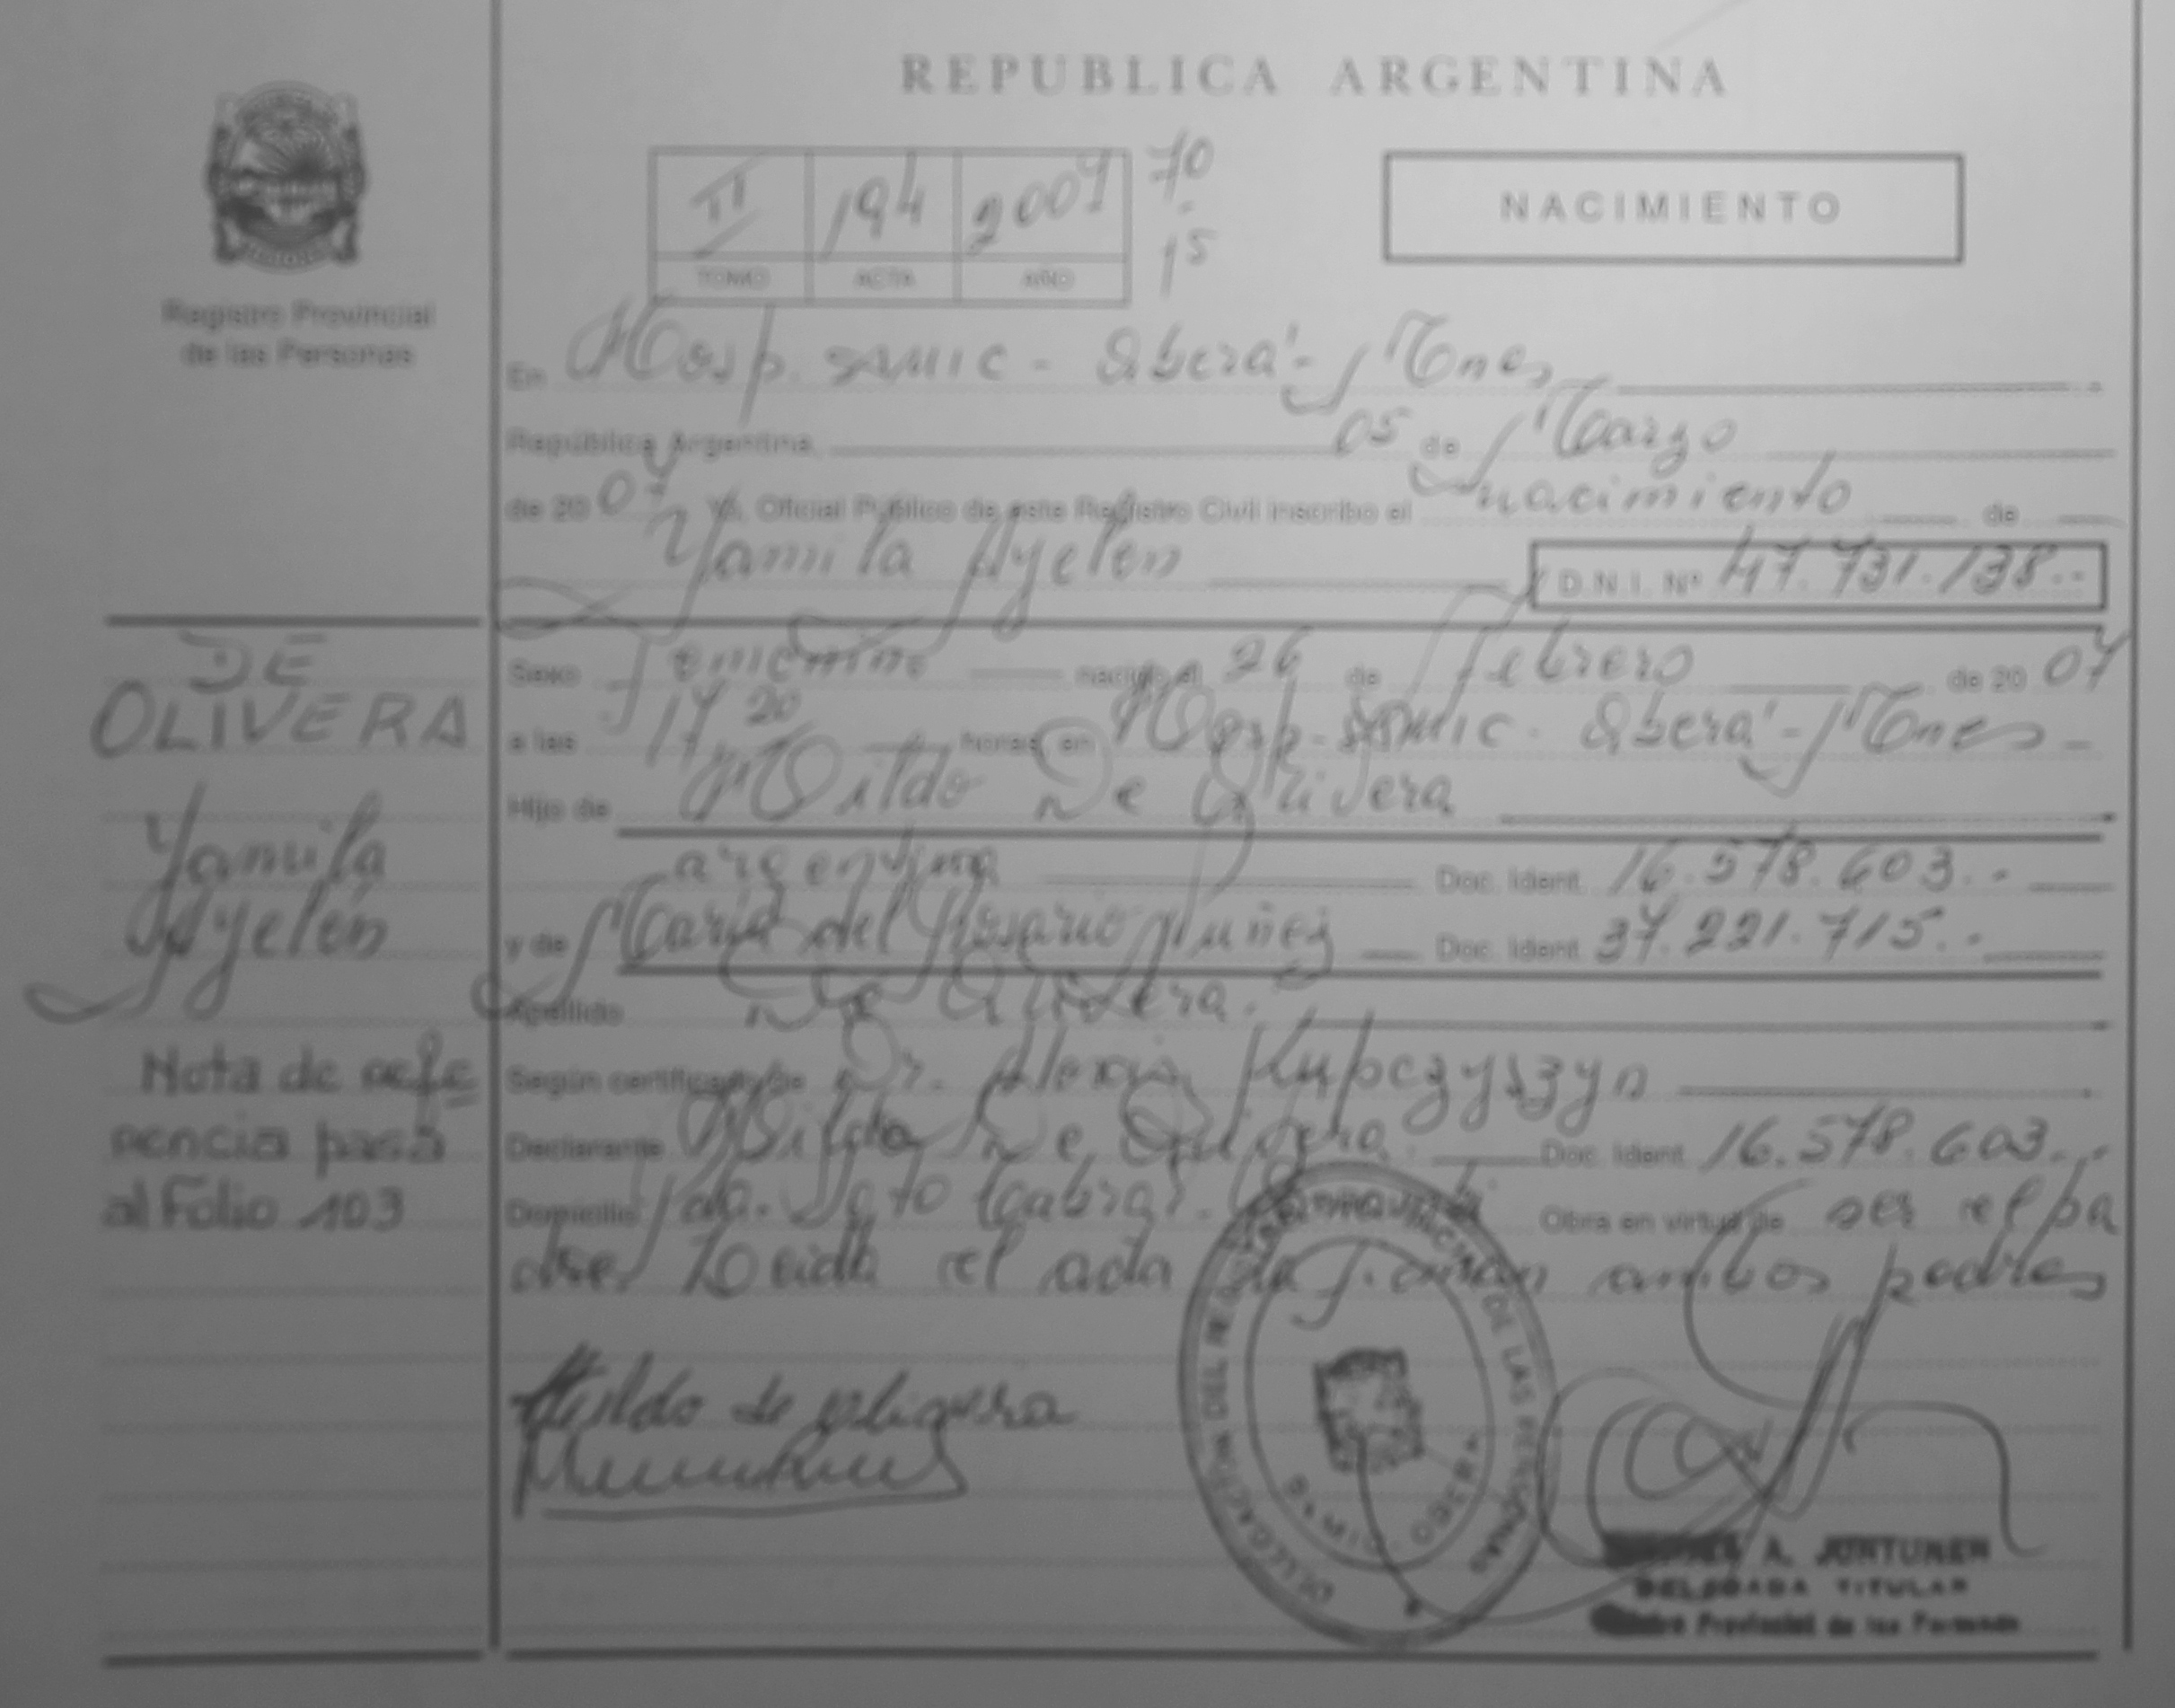 REPUBLICA ARGENTINA
II 194 2007 70
15
TOMO ACTA AÑO
NACIMIENTO
Registro Provincial
de las Personas
En Hosp. SAMIC - Oberá - Mnes
República Argentina, 05 de Marzo
de 20 07 Yo, Oficial Público de este Registro Civil inscribo el nacimiento de
Yamila Ayelén D.N.I. Nº 47.731.138.-
Sexo Femenino nacido el 26 de febrero de 20 07
a las 17 20 horas, en Hosp. SAMIC - Oberá - Mnes -
Hijo de Hildo De Olivera
argentina Doc. Ident. 16.578.603.-
y de María del Rosario Nuñez Doc. Ident. 37.221.715.-
Apellido De Olivera.
Según certificado de Dr. Alexis Kupczyszyn
Declarante Hildo De Olivera. Doc. Ident. 16.578.603.-
Domicilio Soto Cabral. Obra en virtud de ser el pa
dre. Leida el acta la firman ambos padres
DE
OLIVERA
Yamila
Ayelén
Nota de refe
rencia pasa
al Folio 103
Hildo de oligvera
DELEGACION DEL REGISTRO PROVINCIAL DE LAS PERSONAS
SAMIC - OBERA
A. JUNTUNEN
DELEGADA TITULAR
Provincial de las Personas